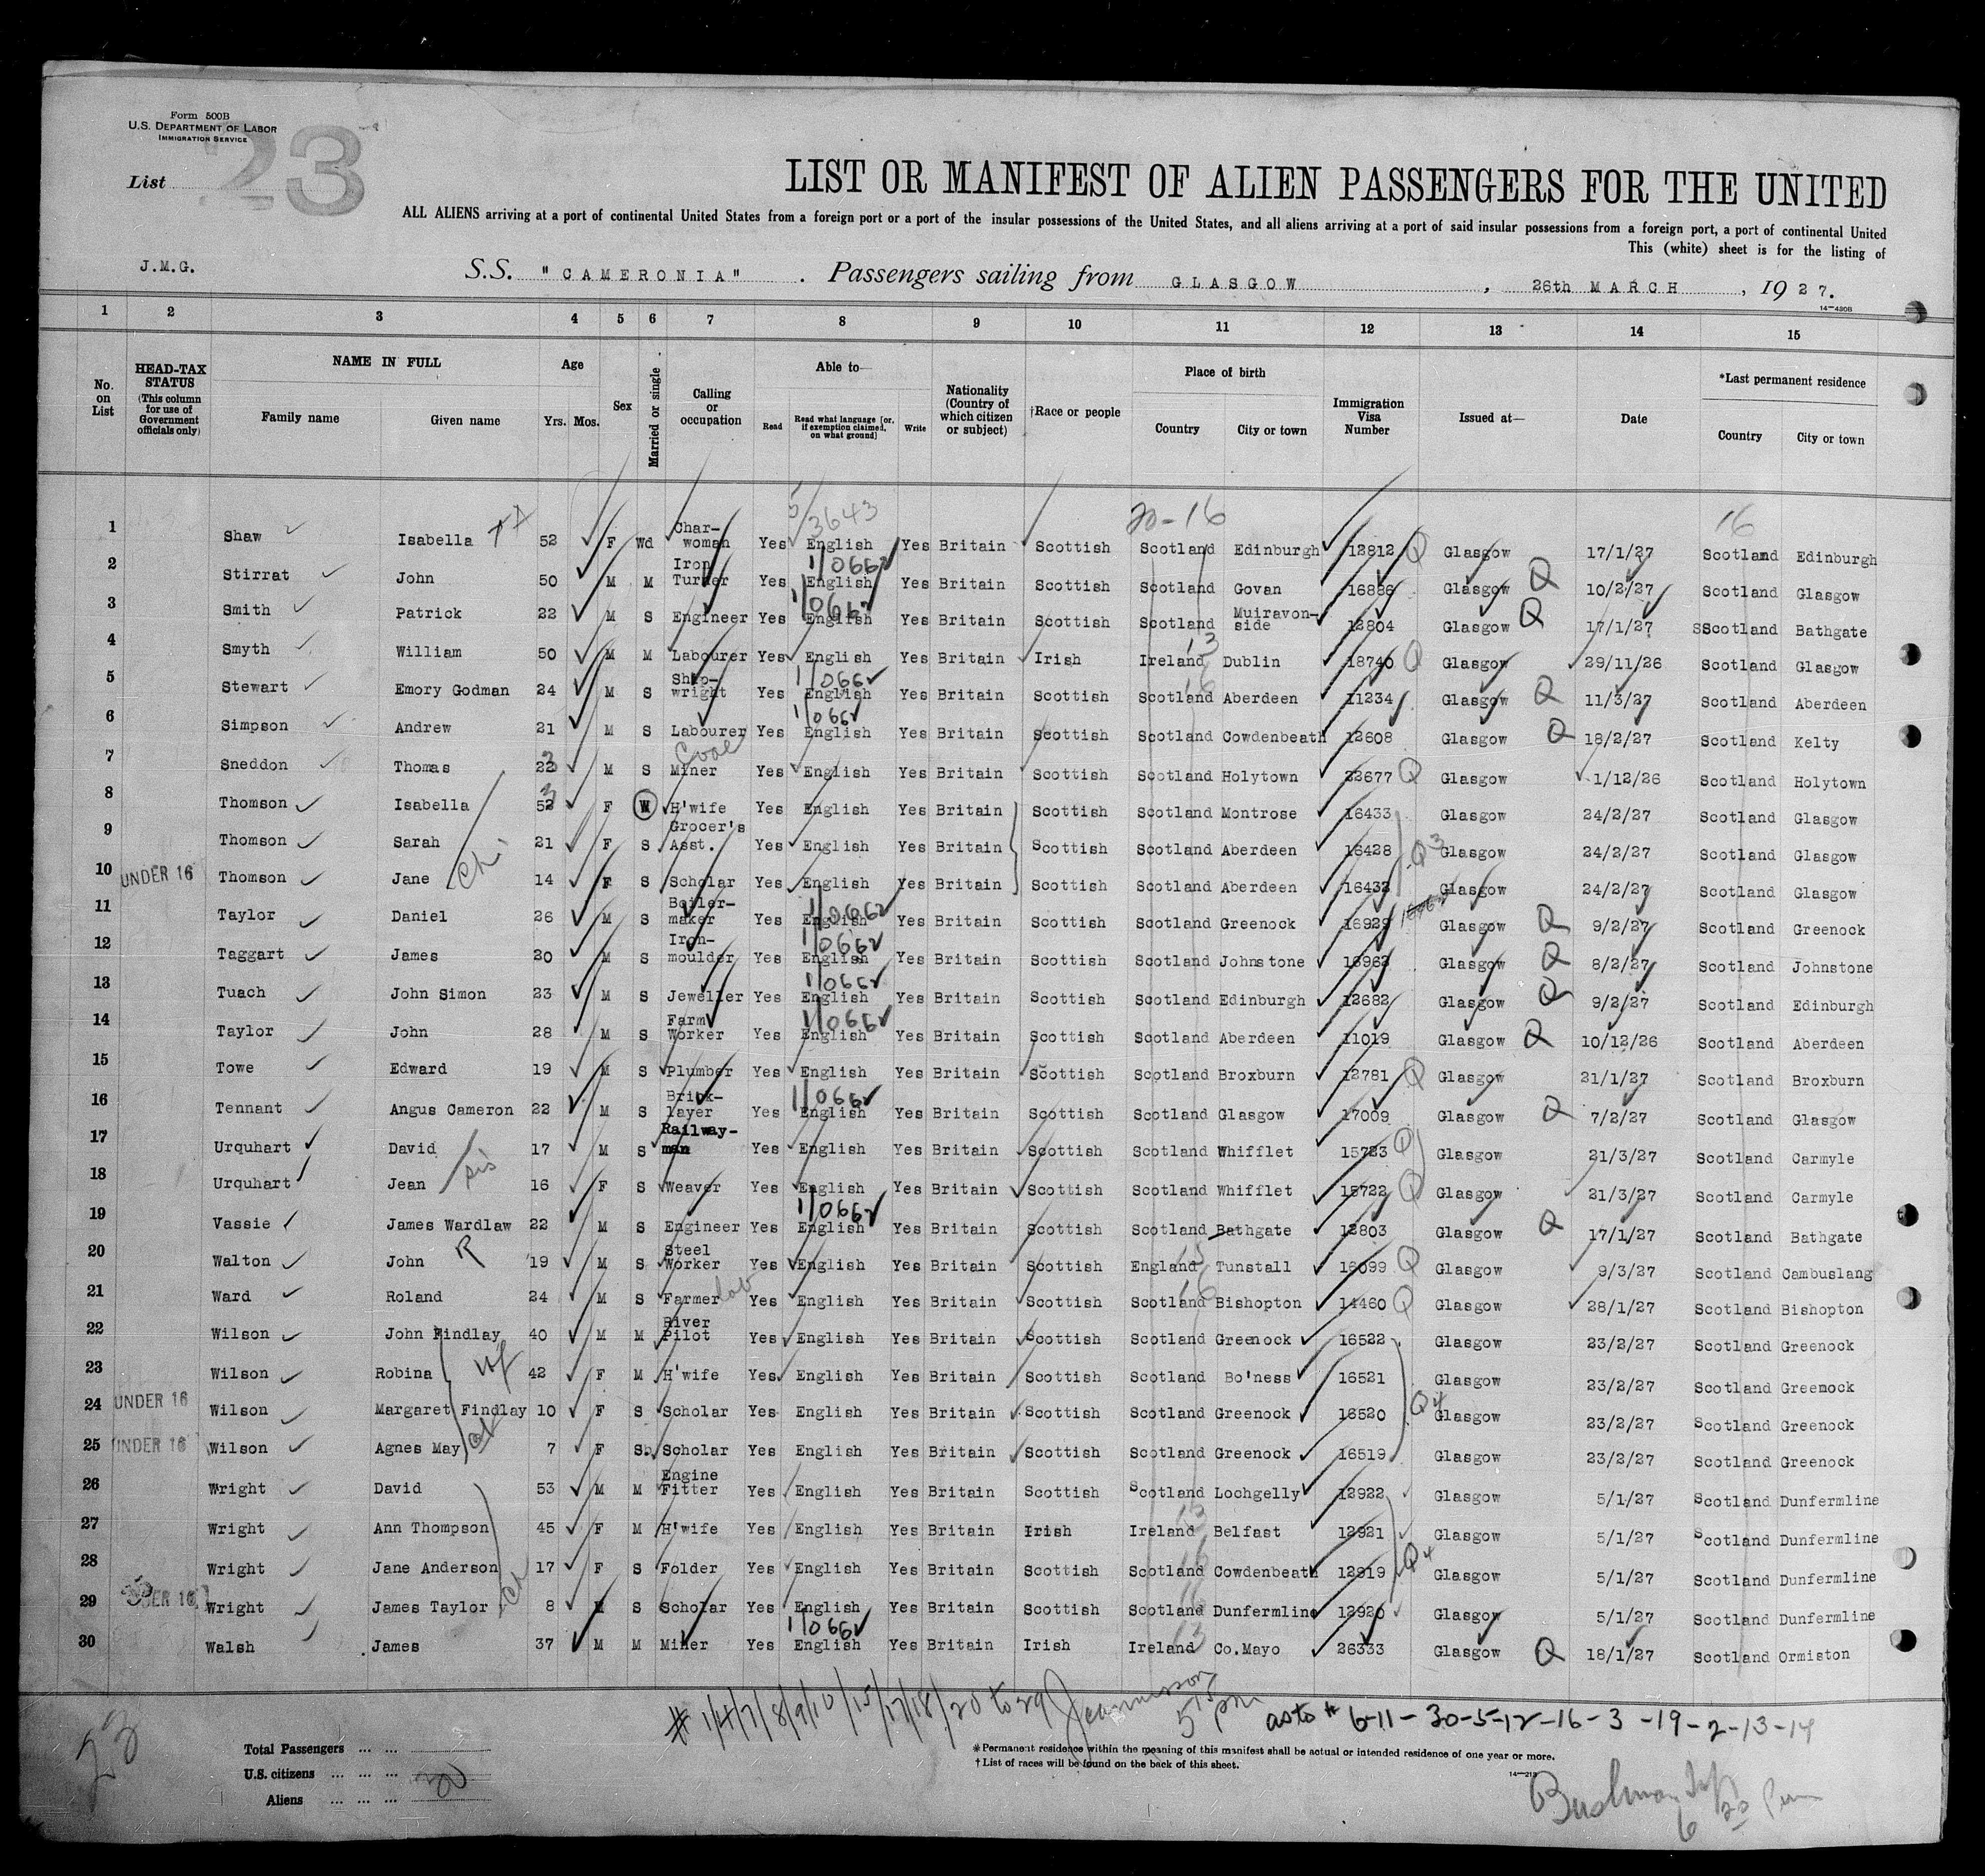 Form 500B
U.S. DEPARTMENT OF LABOR
IMMIGRATION SERVICE
List 23
LIST OR MANIFEST OF ALIEN PASSENGERS FOR THE UNITED
ALL ALIENS arriving at a port of continental United States from a foreign port or a port of the insular possessions of the United States, and all aliens arriving at a port of said insular possessions from a foreign port, a port of continental United
This (white) sheet is for the listing of
J.M.G. S.S. "CAMERONIA" . Passengers sailing from GLASGOW , 26th MARCH , 1927.
14—430B
1 2 3 4 5 6 7 8 9 10 11 12 13 14 15
No. on List HEAD-TAX STATUS (This column for use of Government officials only) NAME IN FULL Family name Given name Age Yrs. Mos. Sex Married or single Calling or occupation Able to— Read Read what language [or, if exemption claimed, on what ground] Write Nationality (Country of which citizen or subject) †Race or people Place of birth Country City or town Immigration Visa Number Issued at— Date *Last permanent residence Country City or town
5 3643 20-16 16
1 Shaw Isabella 52 F Wd Char-woman Yes English Yes Britain Scottish Scotland Edinburgh 12812 Q Glasgow 17/1/27 Scotland Edinburgh
2 Stirrat John 50 M M Iron Turner Yes 1/0662 English Yes Britain Scottish Scotland Govan 16886 Glasgow Q 10/2/27 Scotland Glasgow
3 Smith Patrick 22 M S Engineer Yes 1/0662 English Yes Britain Scottish Scotland Muiravon-side 12804 Glasgow Q 17/1/27 SScotland Bathgate
4 Smyth William 50 M M Labourer Yes English Yes Britain Irish Ireland 13 Dublin 18740 Q Glasgow 29/11/26 Scotland Glasgow
5 Stewart Emory Godman 24 M S Ship-wright Yes 1/0662 English Yes Britain Scottish Scotland 16 Aberdeen 11234 Glasgow Q 11/3/27 Scotland Aberdeen
6 Simpson Andrew 21 M S Labourer Yes 1/0662 English Yes Britain Scottish Scotland Cowdenbeath 12608 Glasgow Q 18/2/27 Scotland Kelty
7 Sneddon Thomas 22 M S Coal Miner Yes English Yes Britain Scottish Scotland Holytown 22677 Q Glasgow 1/12/26 Scotland Holytown
8 Thomson Isabella 52 3 F W H'wife Yes English Yes Britain Scottish Scotland Montrose 16433 Glasgow 24/2/27 Scotland Glasgow
9 Thomson Sarah 21 F S Grocer's Asst. Yes English Yes Britain Scottish Scotland Aberdeen 16428 Q3 Glasgow 24/2/27 Scotland Glasgow
10 UNDER 16 Thomson Jane Chi 14 F S Scholar Yes English Yes Britain Scottish Scotland Aberdeen 16432 Glasgow 24/2/27 Scotland Glasgow
11 Taylor Daniel 26 M S Boiler-maker Yes 1/0662 English Yes Britain Scottish Scotland Greenock 16929 Glasgow Q 9/2/27 Scotland Greenock
12 Taggart James 20 M S Iron-moulder Yes 1/0662 English Yes Britain Scottish Scotland Johnstone 16962 Glasgow Q 8/2/27 Scotland Johnstone
13 Tuach John Simon 23 M S Jeweller Yes 1/0662 English Yes Britain Scottish Scotland Edinburgh 12682 Glasgow Q 9/2/27 Scotland Edinburgh
14 Taylor John 28 M S Farm Worker Yes 1/0662 English Yes Britain Scottish Scotland Aberdeen 11019 Glasgow Q 10/12/26 Scotland Aberdeen
15 Towe Edward 19 M S Plumber Yes English Yes Britain Scottish Scotland Broxburn 12781 Q Glasgow 21/1/27 Scotland Broxburn
16 Tennant Angus Cameron 22 M S Brick-layer Yes 1/0662 English Yes Britain Scottish Scotland Glasgow 17009 Glasgow Q 7/2/27 Scotland Glasgow
17 Urquhart David 17 M S Railway-man Yes English Yes Britain Scottish Scotland Whifflet 15723 Q Glasgow 21/3/27 Scotland Carmyle
18 Urquhart Jean sis 16 F S Weaver Yes English Yes Britain Scottish Scotland Whifflet 15722 Q Glasgow 21/3/27 Scotland Carmyle
19 Vassie James Wardlaw 22 M S Engineer Yes 1/0662 English Yes Britain Scottish Scotland Bathgate 12803 Glasgow Q 17/1/27 Scotland Bathgate
20 Walton John R 19 M S Steel Worker Yes English Yes Britain Scottish England Tunstall 16099 Q Glasgow 9/3/27 Scotland Cambuslang
21 Ward Roland 24 M S Farmer lab Yes English Yes Britain Scottish Scotland 16 Bishopton 14460 Q Glasgow 28/1/27 Scotland Bishopton
22 Wilson John Findlay 40 M M River Pilot Yes English Yes Britain Scottish Scotland Greenock 16522 Glasgow 23/2/27 Scotland Greenock
23 Wilson Robina wf 42 F M H'wife Yes English Yes Britain Scottish Scotland Bo'ness 16521 Glasgow 23/2/27 Scotland Greenock
24 UNDER 16 Wilson Margaret Findlay 10 F S Scholar Yes English Yes Britain Scottish Scotland Greenock 16520 Q4 Glasgow 23/2/27 Scotland Greenock
25 UNDER 16 Wilson Agnes May ch 7 F S Scholar Yes English Yes Britain Scottish Scotland Greenock 16519 Glasgow 23/2/27 Scotland Greenock
26 Wright David 53 M M Engine Fitter Yes English Yes Britain Scottish Scotland Lochgelly 12922 Glasgow 5/1/27 Scotland Dunfermline
27 Wright Ann Thompson 45 F M H'wife Yes English Yes Britain Irish Ireland 13 Belfast 12921 Glasgow 5/1/27 Scotland Dunfermline
28 Wright Jane Anderson 17 F S Folder Yes English Yes Britain Scottish Scotland 16 Cowdenbeath 12919 Q4 Glasgow 5/1/27 Scotland Dunfermline
29 UNDER 16 Wright James Taylor ch 8 M S Scholar Yes English Yes Britain Scottish Scotland 16 Dunfermline 12920 Glasgow 5/1/27 Scotland Dunfermline
30 Walsh James 37 M M Miner Yes 1/0662 English Yes Britain Irish Ireland 13 Co.Mayo 26333 Glasgow Q 18/1/27 Scotland Ormiston
# 1/4/7/8/9/10/15/17/18/20 to 29 5 15 pm as to # 6-11-30-5-12-16-3-19-2-13-14
23
Total Passengers ... ...
U.S. citizens ... ... ... 30
Aliens ... ... ...
*Permanent residence within the meaning of this manifest shall be actual or intended residence of one year or more.
†List of races will be found on the back of this sheet.
14—213
6 20 Pm